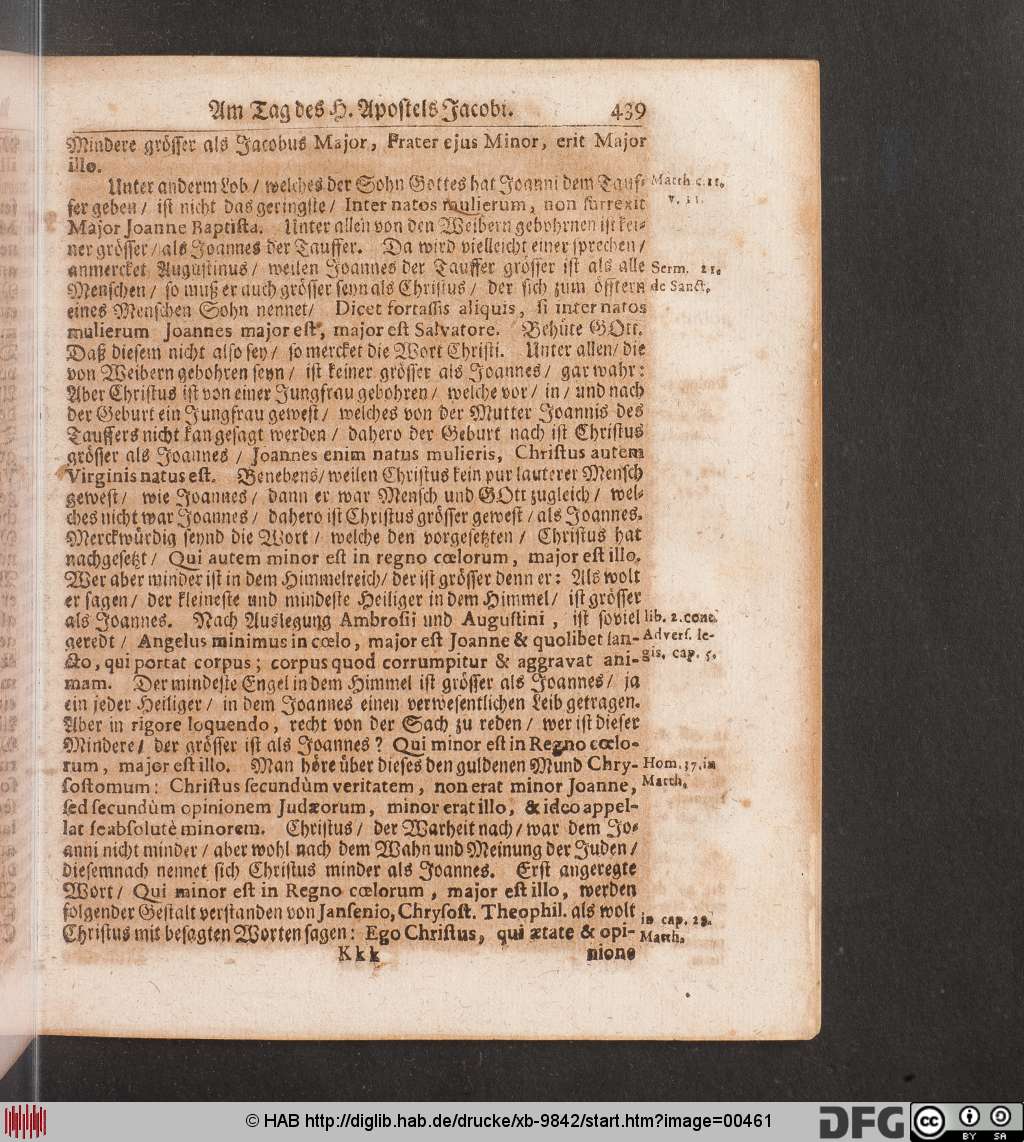 Am Tag des H. Apostels Jacobi. 439
Mindere grösser als Jacobus Major, Frater ejus Minor, erit Major
illo.
Unter anderm Lob / welches der Sohn Gottes hat Joanni dem Tauf-
fer geben / ist nicht das geringste / Inter natos mulierum, non surrexit
Major Joanne Baptista. Unter allen von den Weibern gebohrnen ist kei-
ner grösser / als Joannes der Tauffer. Da wird vielleicht einer sprechen /
anmercket Augustinus / weilen Joannes der Tauffer grösser ist als alle
Menschen / so muß er auch grösser seyn als Christus / der sich zum öfftern
eines Menschen Sohn nennet / Dicet fortassis aliquis, si inter natos
mulierum Joannes major est, major est Salvatore. Behüte GOtt.
Daß diesem nicht also sey / so mercket die Wort Christi. Unter allen / die
von Weibern gebohren seyn / ist keiner grösser als Joannes / gar wahr:
Aber Christus ist von einer Jungfrau gebohren / welche vor / in / und nach
der Geburt ein Jungfrau gewest / welches von der Mutter Joannis des
Tauffers nicht kan gesagt werden / dahero der Geburt nach ist Christus
grösser als Joannes / Joannes enim natus mulieris, Christus autem
Virginis natus est. Benebens / weilen Christus kein pur lauterer Mensch
gewest / wie Joannes / dann er war Mensch und GOtt zugleich / wel-
ches nicht war Joannes / dahero ist Christus grösser gewest / als Joannes.
Merckwürdig seynd die Wort / welche den vorgesetzten / Christus hat
nachgesetzt / Qui autem minor est in regno cœlorum, major est illo.
Wer aber minder ist in dem Himmelreich / der ist grösser denn er: Als wolt
er sagen / der kleineste und mindeste Heiliger in dem Himmel / ist grösser
als Joannes. Nach Auslegung Ambrosii und Augustini, ist soviel
geredt / Angelus minimus in cœlo, major est Joanne & quolibet san-
cto, qui portat corpus; corpus quod corrumpitur & aggravat ani-
mam. Der mindeste Engel in dem Himmel ist grösser als Joannes / ja
ein jeder Heiliger / in dem Joannes einen verwesentlichen Leib getragen.
Aber in rigore loquendo, recht von der Sach zu reden / wer ist dieser
Mindere / der grösser ist als Joannes? Qui minor est in Regno cœlo-
rum, major est illo. Man höre über dieses den guldenen Mund Chry-
sostomum: Christus secundùm veritatem, non erat minor Joanne,
sed secundùm opinionem Judæorum, minor erat illo, & ideo appel-
lat se absolutè minorem. Christus / der Warheit nach / war dem Jo-
anni nicht minder / aber wohl nach dem Wahn und Meinung der Juden /
diesemnach nennet sich Christus minder als Joannes. Erst angeregte
Wort / Qui minor est in Regno cœlorum, major est illo, werden
folgender Gestalt verstanden von Jansenio, Chrysost. Theophil. als wolt
Christus mit besagten Worten sagen: Ego Christus, qui ætate & opi-
Kkk nione
Matth. c. 11.
v. 11.
Serm. 21.
de Sanct.
lib. 2. cont.
Advers. le-
gis. cap. 5.
Hom. 37. in
Matth.
in cap.
Matth.
© HAB http://diglib.hab.de/drucke/xb-9842/start.htm?image=00461
DFG
cc
BY SA